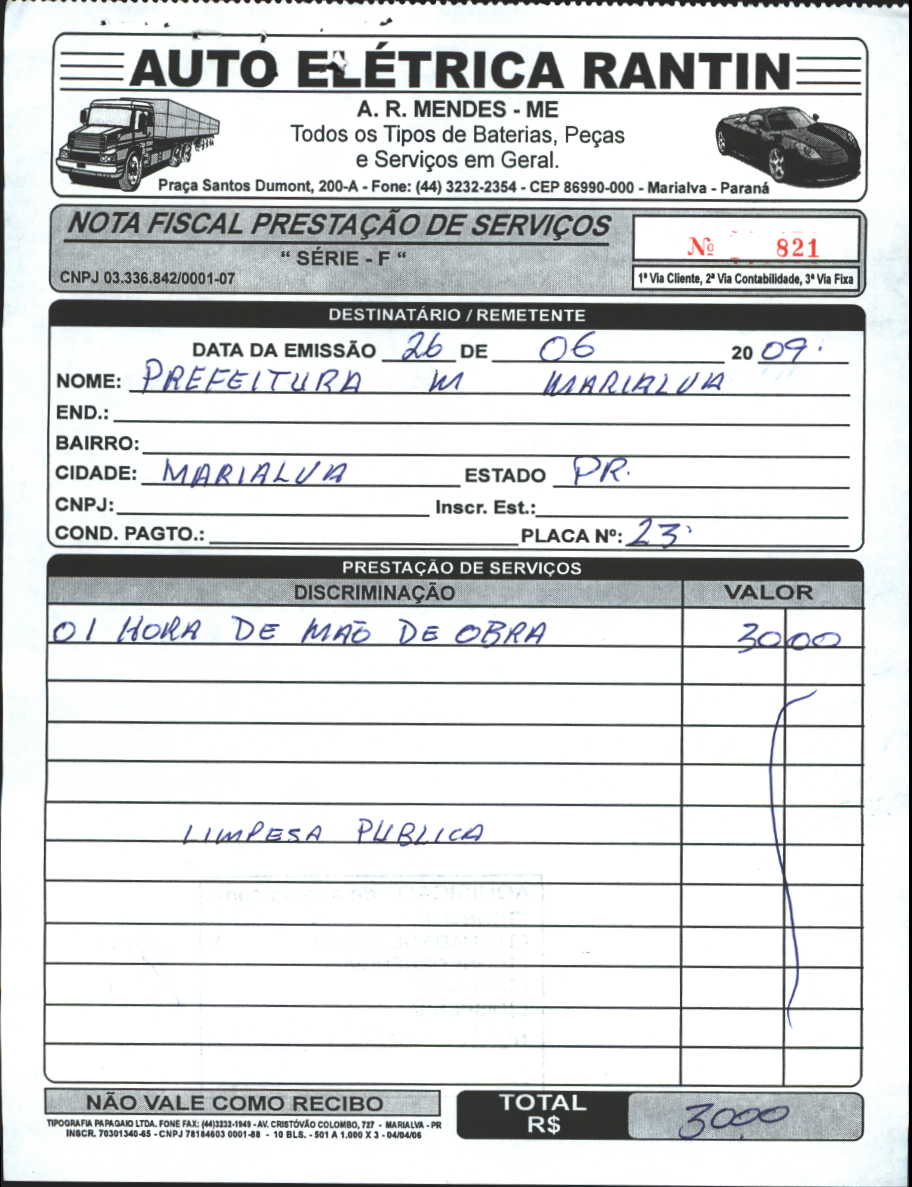 AUTO ELÉTRICA RANTIN
A. R. MENDES - ME
Todos os Tipos de Baterias, Peças
e Serviços em Geral.
Praça Santos Dumont, 200-A - Fone: (44) 3232-2354 - CEP 86990-000 - Marialva - Paraná
NOTA FISCAL PRESTAÇÃO DE SERVIÇOS
" SÉRIE - F "
Nº 821
CNPJ 03.336.842/0001-07
1ª Via Cliente, 2ª Via Contabilidade, 3ª Via Fixa
DESTINATÁRIO / REMETENTE
DATA DA EMISSÃO 26 DE 06 2009.
NOME: PREFEITURA M MARIALVA
END.:
BAIRRO:
CIDADE: MARIALVA ESTADO PR.
CNPJ: Inscr. Est.:
COND. PAGTO.: PLACA Nº: 23
PRESTAÇÃO DE SERVIÇOS
DISCRIMINAÇÃO VALOR
01 HORA DE MÃO DE OBRA 30 00
LIMPESA PUBLICA
NÃO VALE COMO RECIBO
TOTAL
R$ 3000
TIPOGRAFIA PAPAGAIO LTDA. FONE FAX: (44)3232-1949 - AV. CRISTÓVÃO COLOMBO, 727 - MARIALVA - PR
INSCR. 70301340-65 - CNPJ 78184603 0001-88 - 10 BLS. - 501 A 1.000 X 3 - 04/04/06